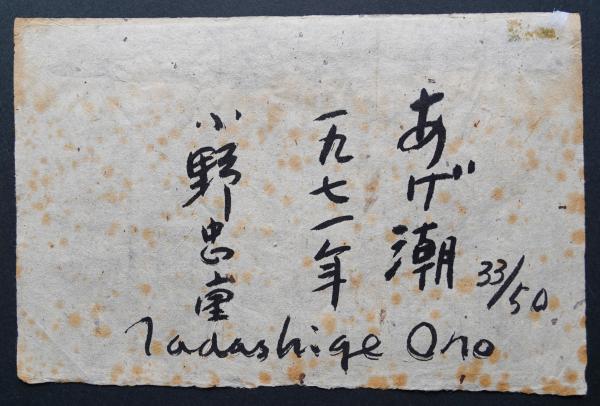 あげ潮
33/50
一九七一年
小野忠重
Tadashige Ono